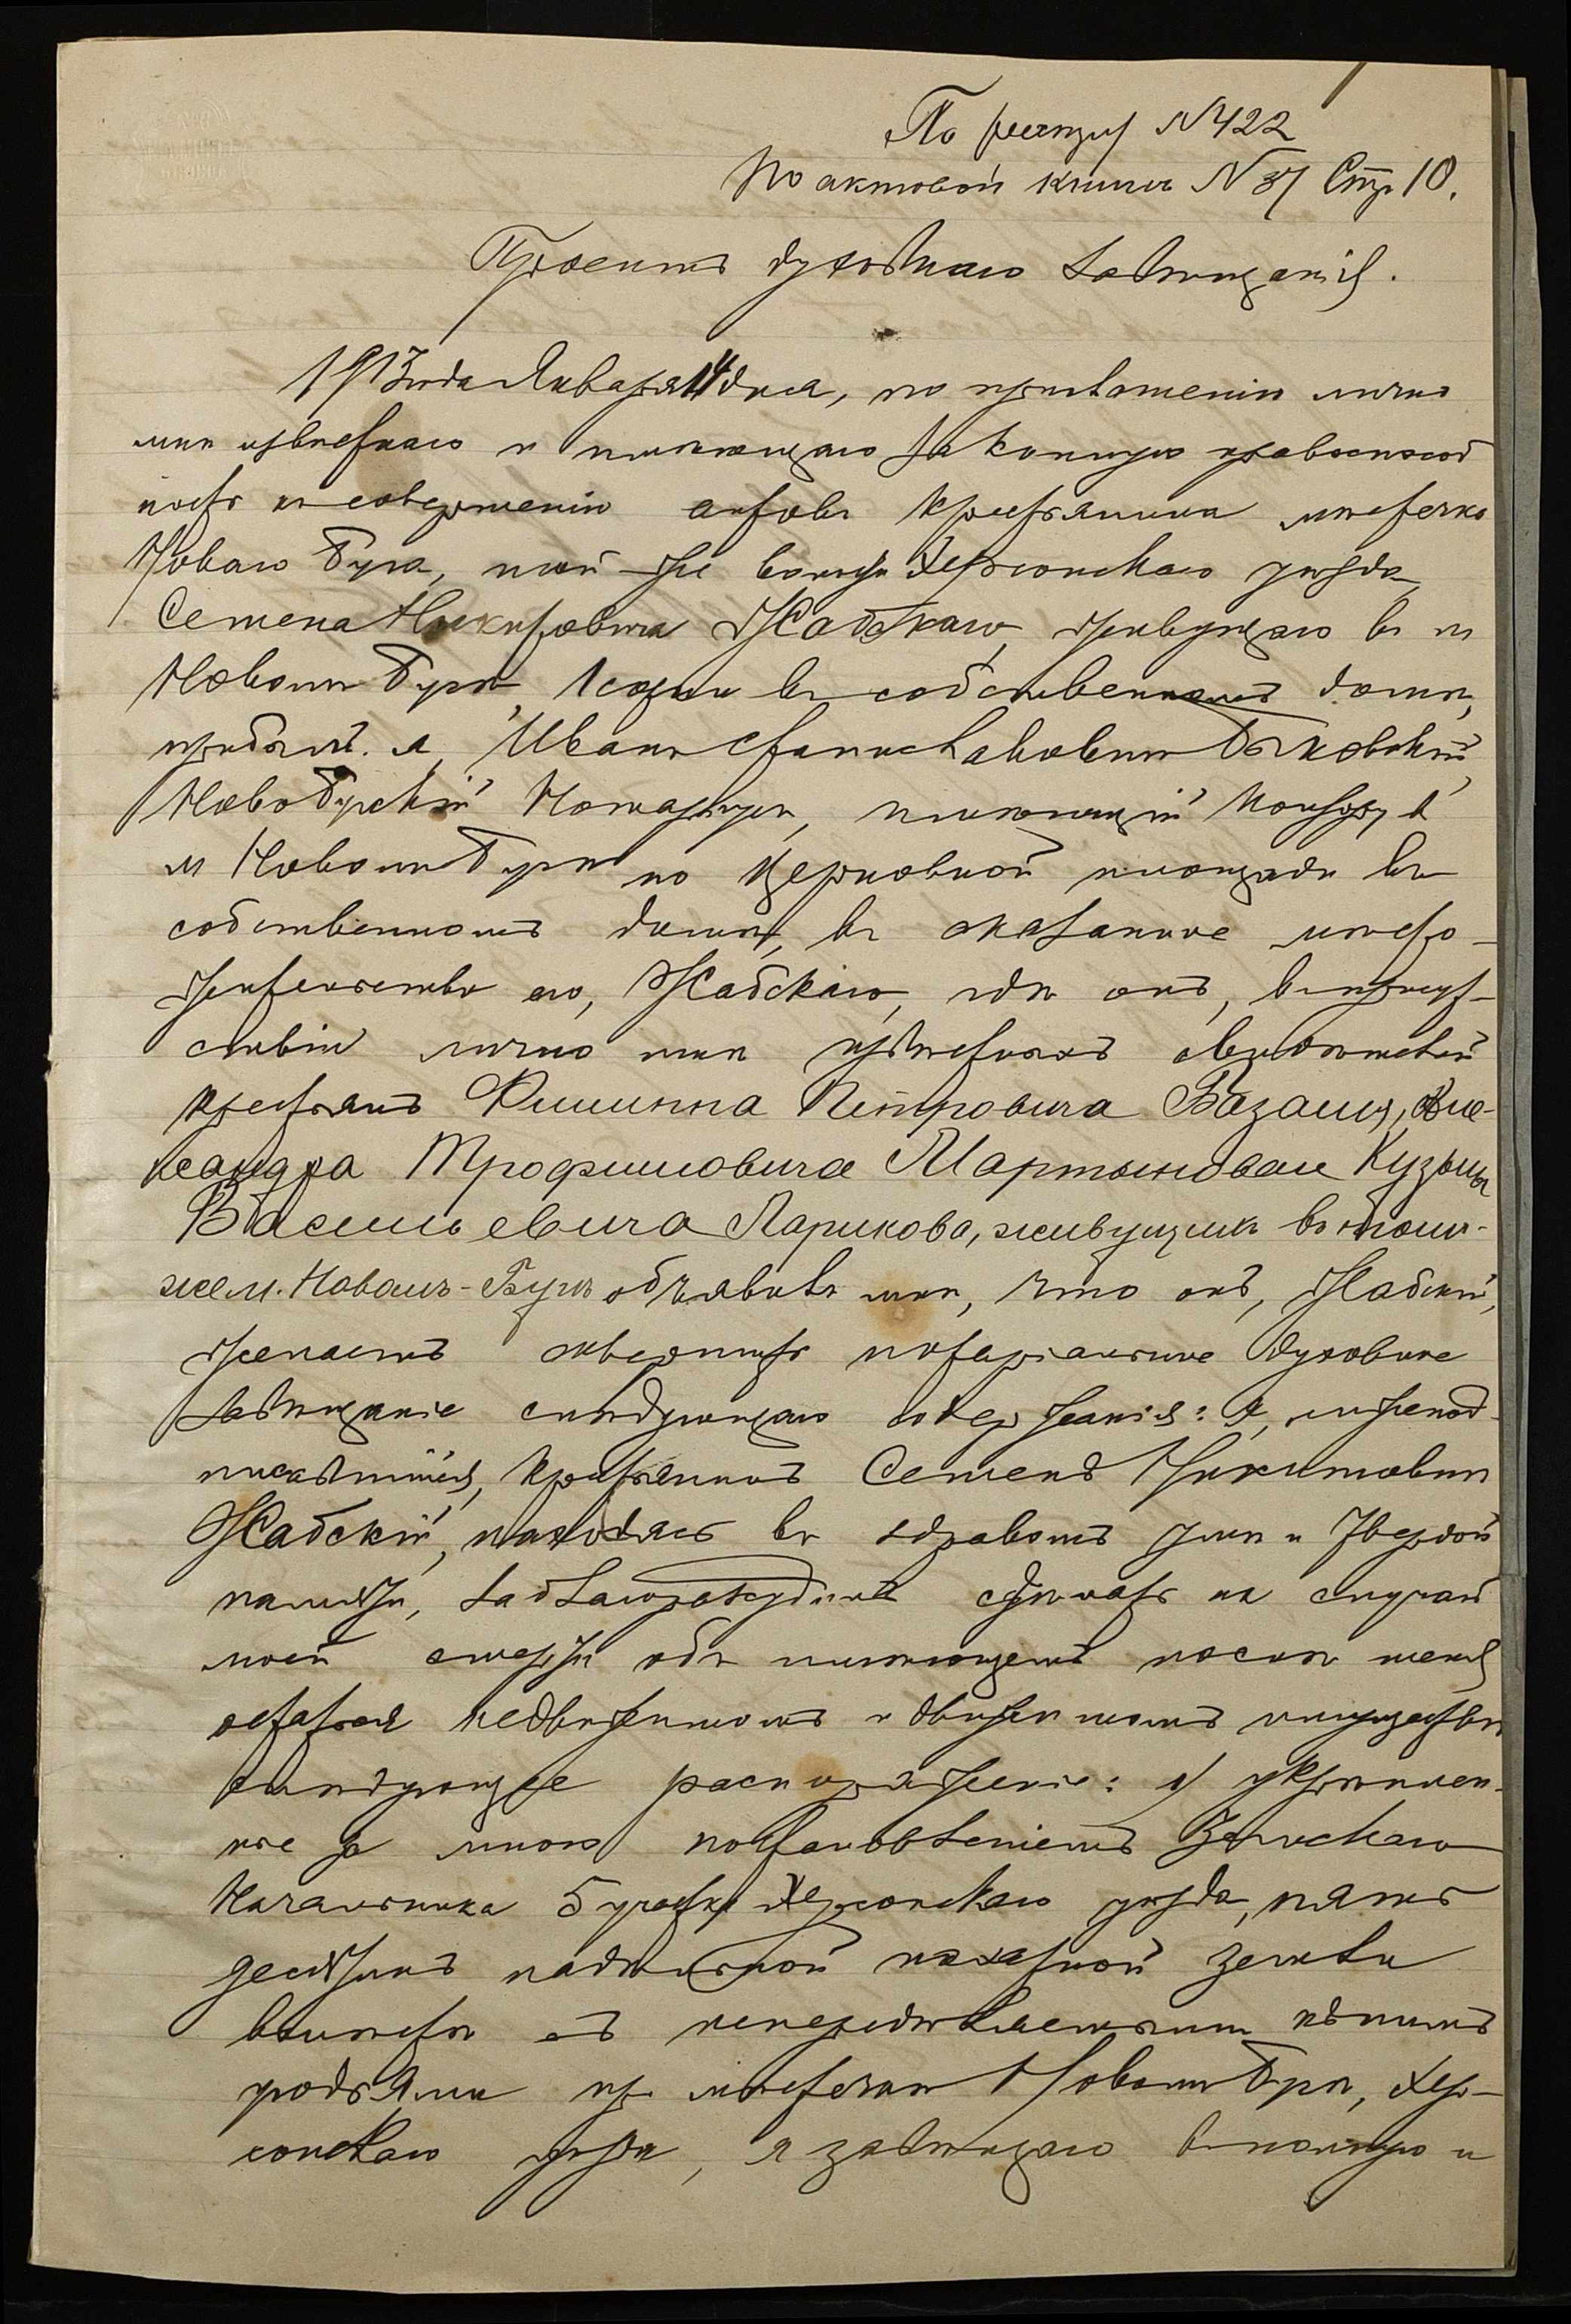 По реестру № 422
По актовой книгѣ № 37 Стр. 10.
Проектъ духовнаго завѣщанія.
1913 года Января 14 дня, по приглашенію лично
мнѣ извѣстнаго и имѣющаго законную правоспособ
ность къ совершенію актовъ крестьянина мѣстечка
Новаго Буга, той-же волости Херсонскаго уѣзда,
Семена Никитовича Жабскаго, живущаго въ м
Новомъ Бугѣ, въ собственномъ домѣ,
прибылъ я, Иванъ Станиславовичъ Бычковскій
Новобугскій Нотаріусъ, имѣющій контору въ
м Новомъ Бугѣ по Церковной площади въ
собственномъ домѣ, въ сказанное мѣсто-
жительство его, Жабскаго, гдѣ онъ, въ присут-
ствіи лично мнѣ извѣстныхъ свидѣтелей
крестьянъ Филиппа Петровича Базалия, Але-
ксандра Трофимовича Мартынова и Кузьмы
Васильевича Ларикова, живущихъ въ томъ-
же м. Новомъ-Бугѣ объявилъ мнѣ, что онъ, Жабскій,
желаетъ совершить нотаріальное духовное
завѣщаніе слѣдующаго содержанія: Я, нижепод-
писавшійся, крестьянинъ Семенъ Никитовичъ
Жабскій, находясь въ здравомъ умѣ и твердой
памяти, заблагоразсудилъ сдѣлать на случай
моей смерти объ имѣющемъ послѣ меня
остаться недвижимомъ и движимомъ имуществѣ
слѣдующее распоряженіе: 1) укрѣплен-
ное за мною постановленіемъ Земскаго
Начальника 5 участка Херсонскаго уѣзда, пять
десятинъ надѣльной пахатной земли
вмѣстѣ съ непередѣляемыми
угодьями при мѣстечкѣ Новомъ Бугѣ, Хер-
сонскаго уѣзда, я завѣщаю въ полную и